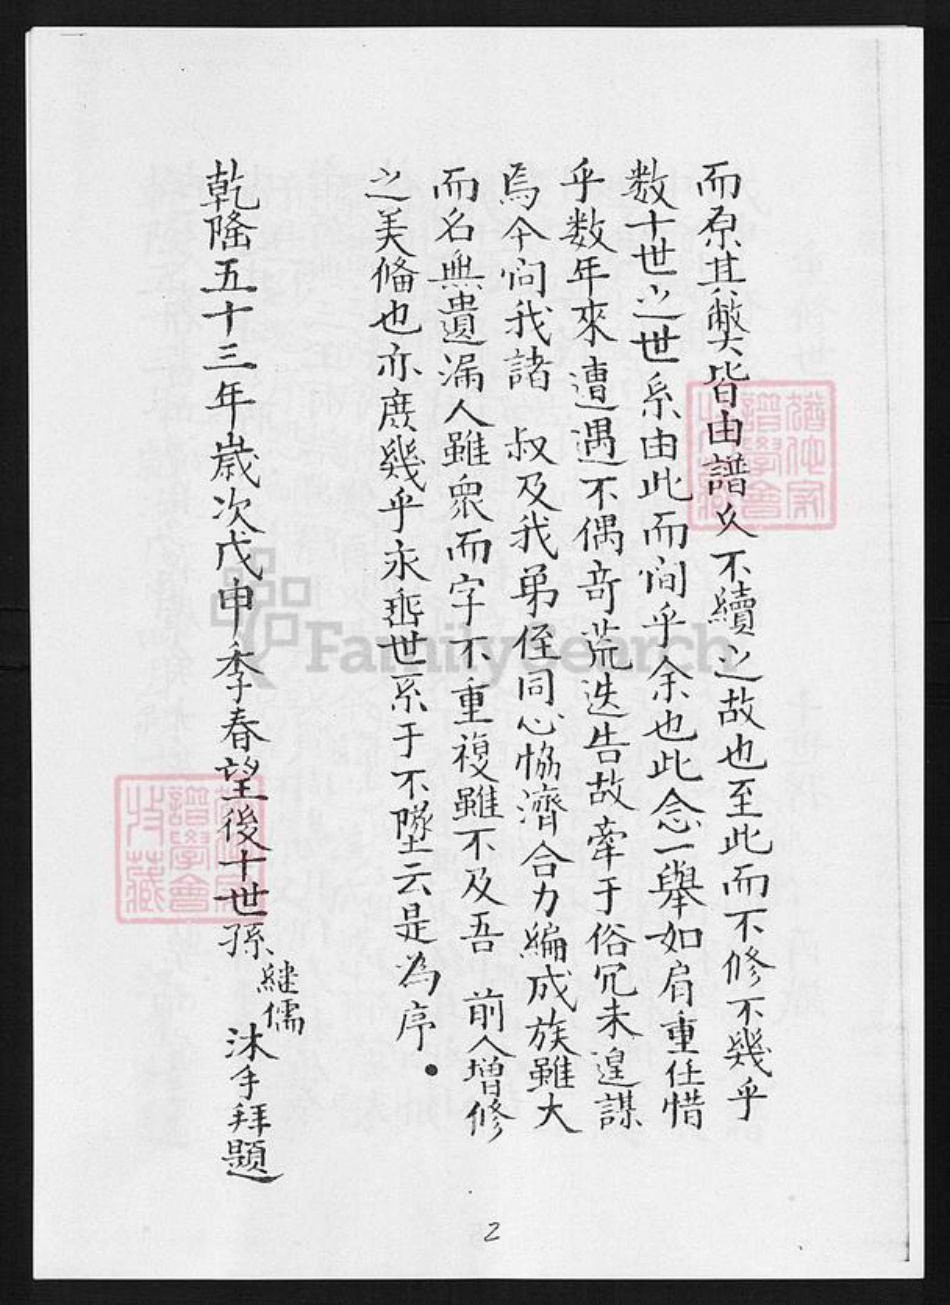 而原其弊皆由譜久不續之故也至此而不修不幾乎
数十世之世系由此而间乎余也此念一舉如肩重任惜
乎数年來遭遇不偶奇荒迭告故牽于俗冗未遑謀
焉今间我諸 叔及我弟侄同心恊濟合力編成族雖大
而名無遺漏人雖眾而字不重複雖不及吾 前人增修
之美俻也亦庶幾乎永垂世系于不墜云是為序
乾隆五十三年歲次戊申季春望後十世孫継儒沐手拜題
譜學會
收藏
譜學會
收藏
FamilySearch
2